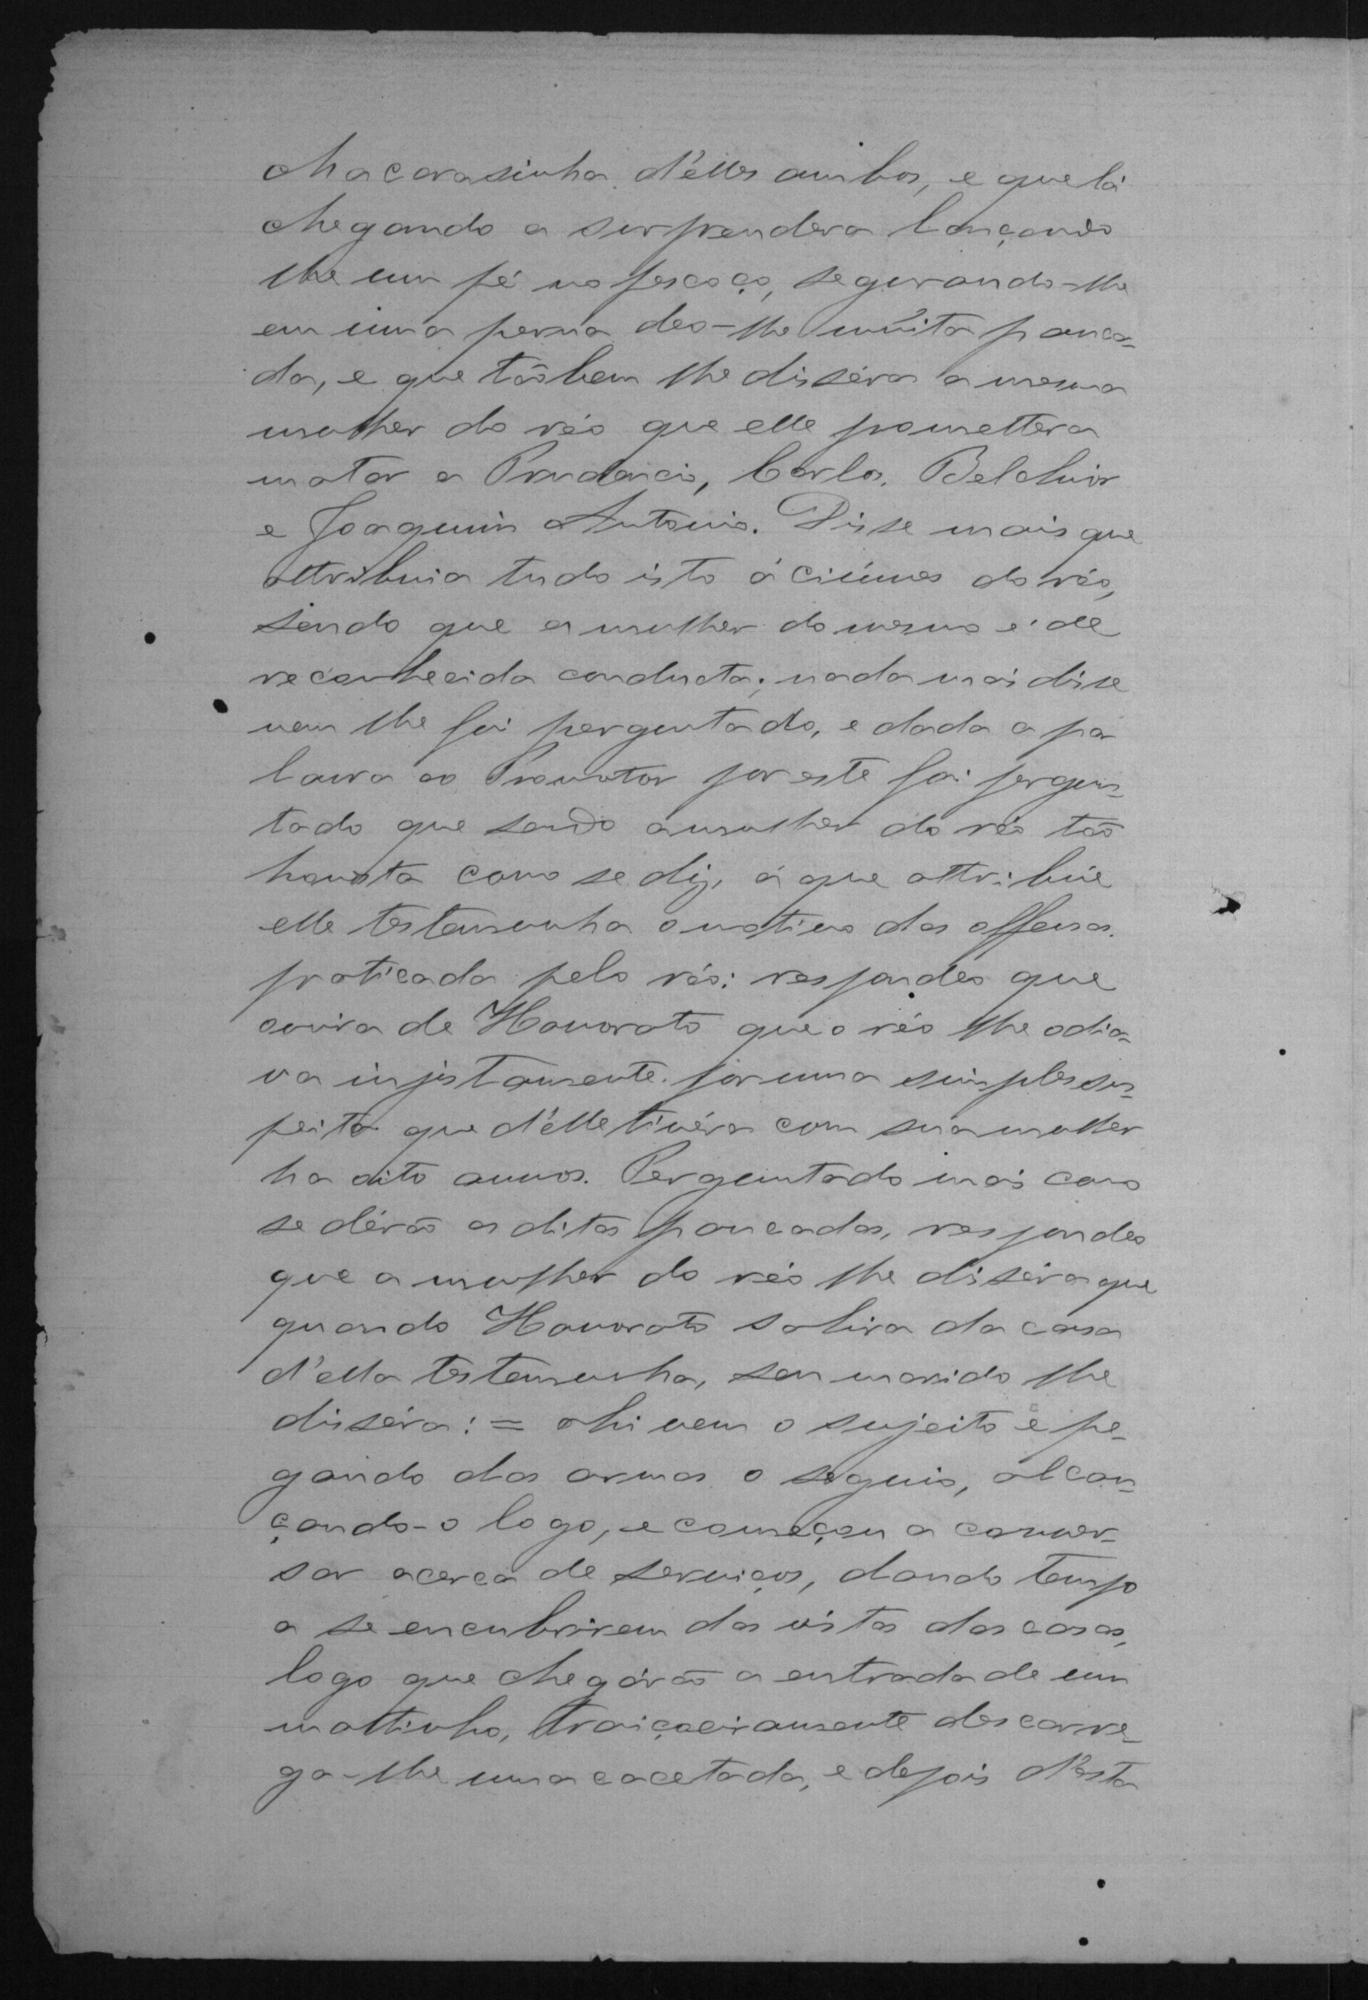 chacarasinha d'elles ambos, e que lá
chegando a surprendera lançando
lhe um pé no pescoço, segurando-lhe
em uma perna deo-lhe muita panca-
da, e que tãobem lhe disséra a mesma
mulher do réo que elle promettera
matar a Prudencio, Carlos, Belchior
e Joaquim Antonio. Disse mais que
attribuia tudo isto á ciúmes do réo,
sendo que a mulher do mesmo é de
reconhecida conducta; nada mais disse
nem lhe foi perguntado, e dada a pa
lavra ao Promotor por este foi pergun-
tado que sendo a mulher do réo tão
honesta como se diz, á que attribúe
elle testemunha o motivo das offensas
praticada pelo réo: respondeo que
ouvira de Honorato que o réo lhe odia-
va injustamente por uma simples sus-
peita que d'elle tivéra com sua mulher
ha oito annos. Perguntado mais como
se dérão as ditas pancadas, respondeo
que a mulher do réo lhe disséra que
quando Honorato sahira da casa
d'ella testemunha, seu marido lhe
disséra: = ahi vem o sujeito e pe-
gando das armas o seguio, alcan-
çando-o logo, e começou a conver-
sar acerca de serviços, dando tempo
a se encubrirem das vistas das casas,
logo que chegárão a entrada de um
mattinho, traiçoeiramente descarre-
ga-lhe uma cacetada, e depois d'esta